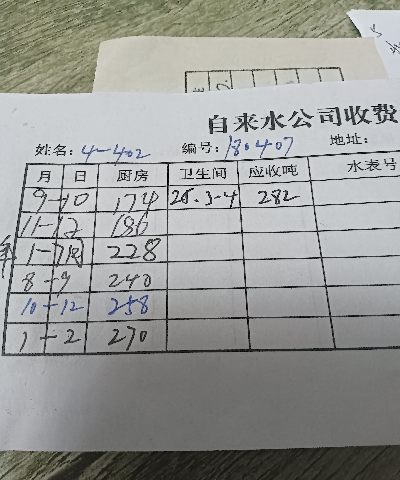 自来水公司收费
姓名: 4-402 编号: 180407 地址:
月 日 厨房 卫生间 应收吨 水表号
9-10 174 25.3-4 282
11-12 186
1-7月 228
8-9 240
10-12 258
1-2 270